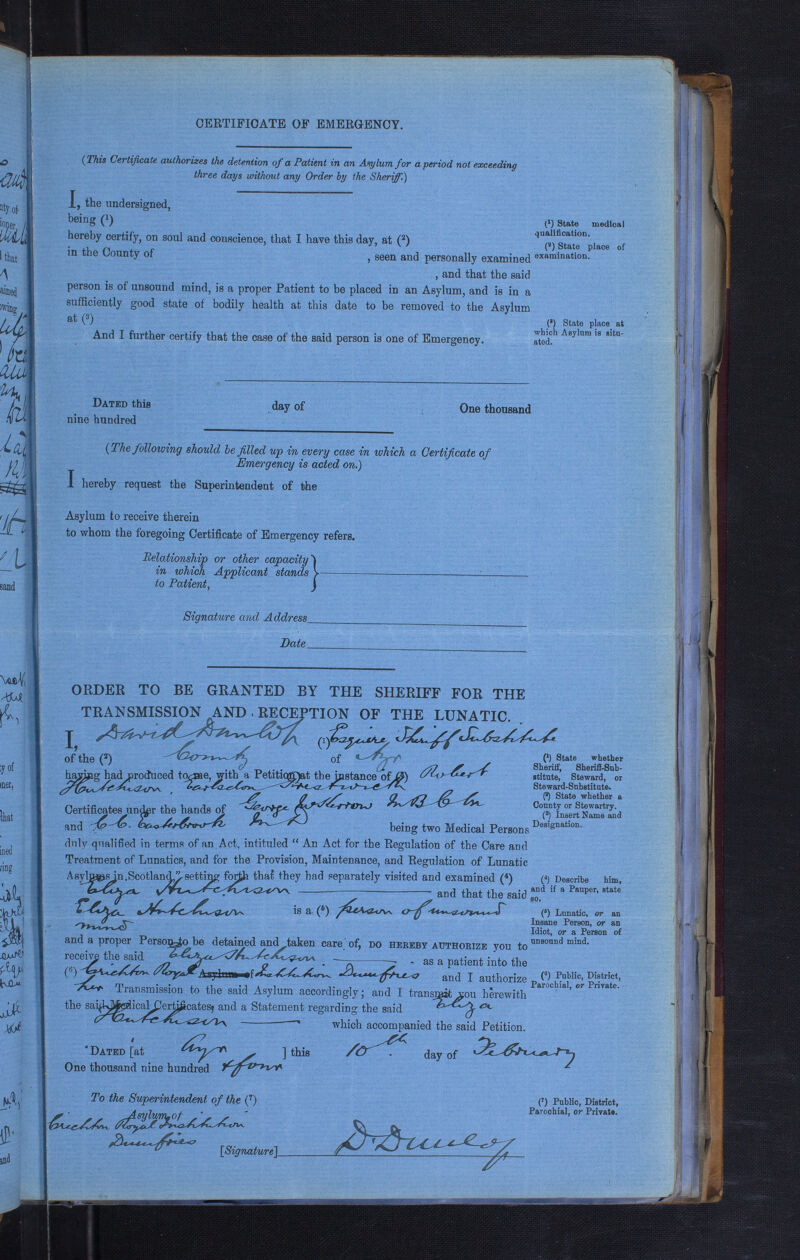 CERTIFICATE OF EMERGENCY.
(This Certificate authorizes the detention of a Patient in an Asylum for a period not exceeding
three days without any Order by the Sheriff.)
I, the undersigned,
being (1)
hereby certify, on soul and conscience, that I have this day, at (2)
in the County of , seen and personally examined
, and that the said
person is of unsound mind, is a proper Patient to be placed in an Asylum, and is in a
sufficiently good state of bodily health at this date to be removed to the Asylum
at (3)
And I further certify that the case of the said person is one of Emergency.
(1) State medical
qualification.
(2) State place of
examination.
(3) State place at
which Asylum is situ-
ated.
DATED this day of One thousand
nine hundred
(The following should be filled up in every case in which a Certificate of
Emergency is acted on.)
I hereby request the Superintendent of the
Asylum to receive therein
to whom the foregoing Certificate of Emergency refers.
Relationship or other capacity
in which Applicant stands
to Patient,
Signature and Address
Date
ORDER TO BE GRANTED BY THE SHERIFF FOR THE
TRANSMISSION AND RECEPTION OF THE LUNATIC.
I, David Dunlop (1) Esquire Sheriff Substitute
of the (2) County of Ayr
having had produced to me, with a Petition at the instance of (3) Robert
Hutchison, Prestwick
Certificates under the hands of George M.B. C.M
and C. C. Easterbrook M.D being two Medical Persons
duly qualified in terms of an Act, intituled "An Act for the Regulation of the Care and
Treatment of Lunatics, and for the Provision, Maintenance, and Regulation of Lunatic
Asylums in Scotland," setting forth that they had separately visited and examined (4)
Eliza Hutchison and that the said
Eliza Hutchison is a (5) person of unsound
mind
and a proper Person to be detained and taken care of, DO HEREBY AUTHORIZE you to
receive the said Eliza Hutchison - as a patient into the
(6) Crichton Royal Asylum of Institution Dumfries and I authorize
her Transmission to the said Asylum accordingly; and I transmit you herewith
the said Medical Certificates, and a Statement regarding the said Eliza
Hutchison which accompanied the said Petition.
DATED [at Ayr ] this 10th. day of February
One thousand nine hundred & four
To the Superintendent of the (7)
Asylum of
Crichton Royal Institution
Dumfries
[Signature] D. Dunlop
(1) State whether
Sheriff, Sheriff-Sub-
stitute, Steward, or
Steward-Substitute.
(2) State whether a
County or Stewartry.
(3) Insert Name and
Designation.
(4) Describe him,
and if a Pauper, state
so.
(5) Lunatic, or an
Insane Person, or an
Idiot, or a Person of
unsound mind.
(6) Public, District,
Parochial, or Private.
(7) Public, District,
Parochial, or Private.